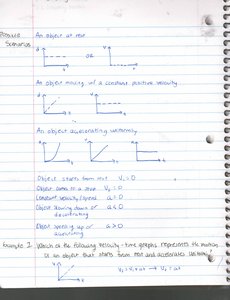 Possible
Scenarios
An object at rest
d
v
OR
t
t
An object moving w/ a constant positive velocity
d
v
t
t
An object accelerating uniformly
d
v
a
t
t
t
Object starts from rest V₁ = 0
Object comes to a stop V₂ = 0
Constant velocity/speed a = 0
Object slowing down or a < 0
decelerating
Object speeding up or a > 0
accelerating
Example 1. Which of the following velocity-time graphs represents the motion
of an object that starts from rest and accelerates uniformly?
V
t
V₂ = V₁ + at → V₂ = at